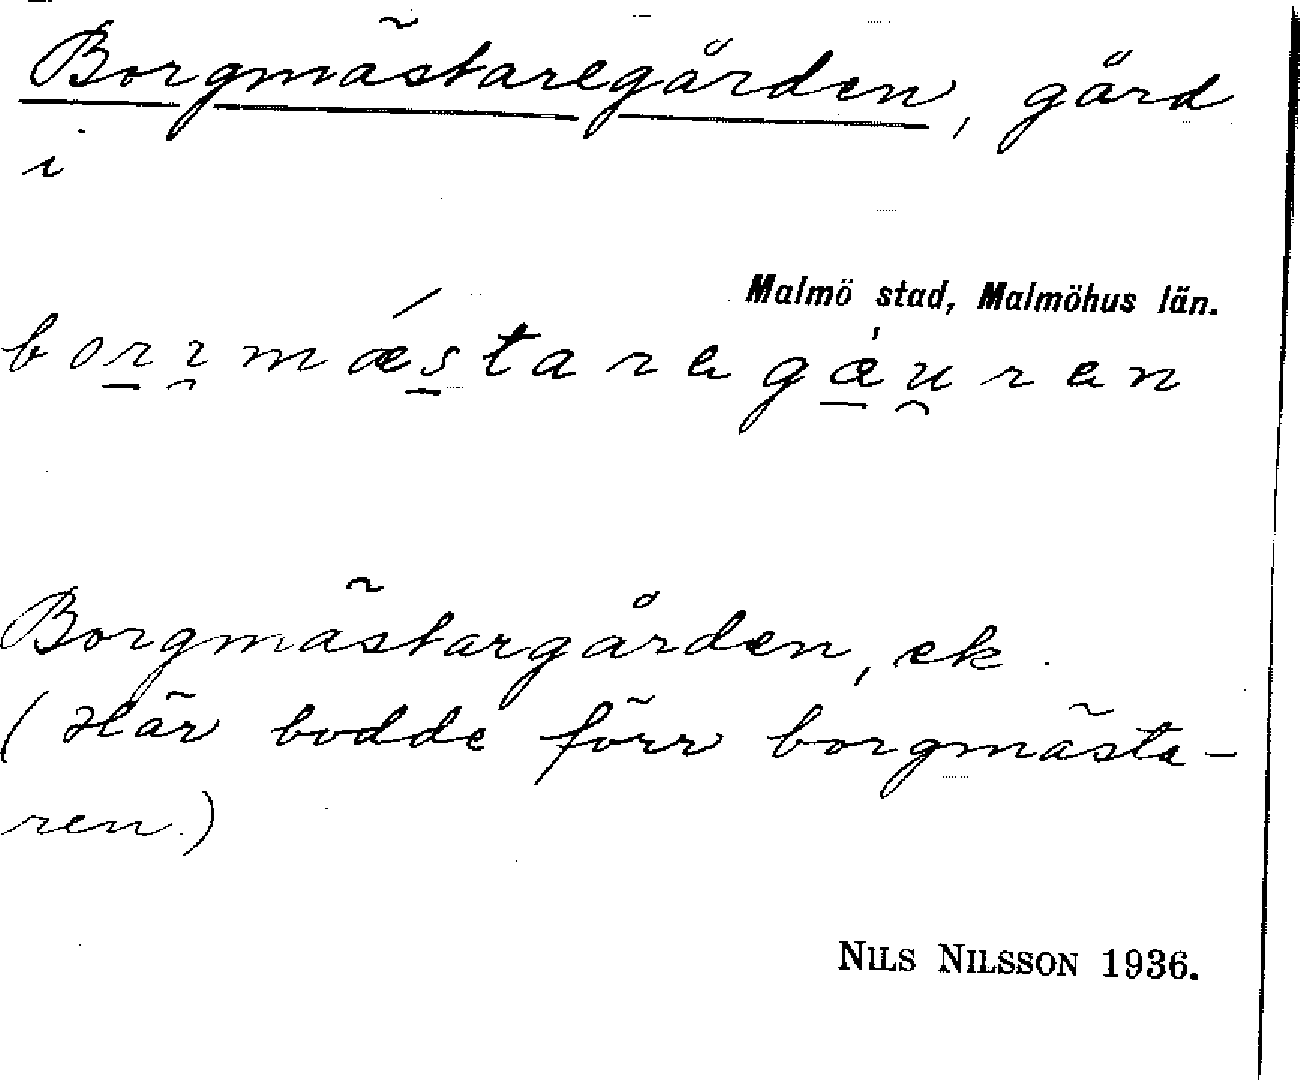 Borgmästaregården, gård
i
Malmö stad, Malmöhus län.
borrmæstaregæuren
Borgmästargården, ek.
(Här bodde förr borgmästa-
ren.)
NILS NILSSON 1936.